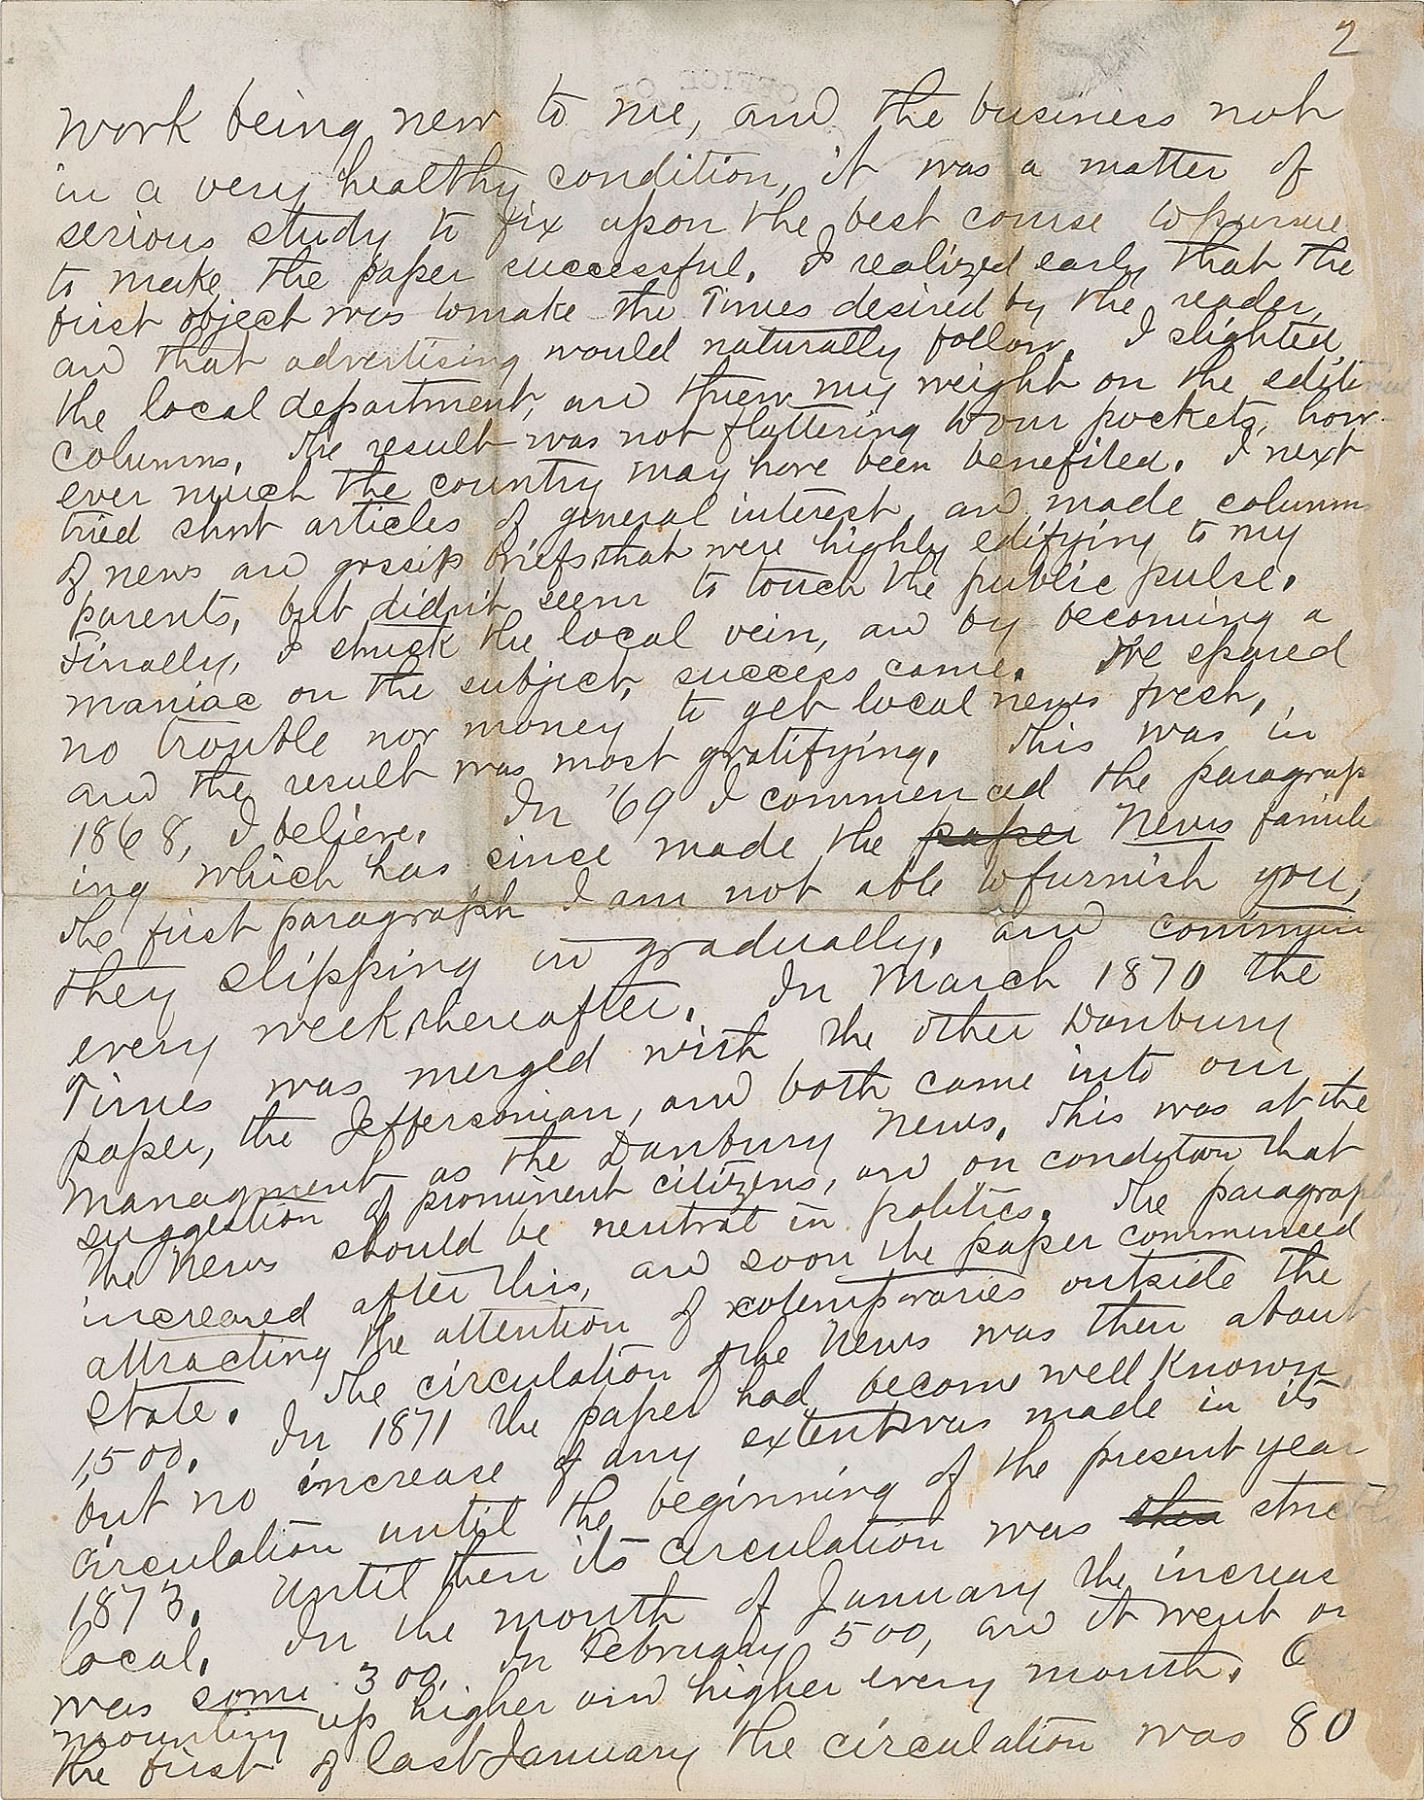 2
work being new to me, and the business not
in a very healthy condition, it was a matter of
serious study to fix upon the best course to pursue
to make the paper successful. I realized early that the
first object was to make the Times desired by the reader,
and that advertising would naturally follow. I slighted
the local department, and threw my weight on the editorial
columns. The result was not flattering to our pockets, how-
ever much the country may have been benefited. I next
tried short articles of general interest, and made columns
of news and gossip briefs that were highly edifying to my
parents, but didn't seem to touch the public pulse.
Finally, I struck the local vein, and by becoming a
maniac on the subject, success came. We spared
no trouble nor money to get local news fresh,
and the result was most gratifying. This was in
1868, I believe. In '69 I commenced the paragraph
ing which has since made the paper News familiar
the first paragraph I am not able to furnish you,
they slipping in gradually, and
every week thereafter. In March 1870 the
Times was merged with the other Danbury
paper, the Jeffersonian, and both came into our
managment as the Danbury News. This was at the
suggestion of prominent citizens, and on condition that
the News should be neutral in politics. The paragraphs
increased after this, and soon the paper commenced
attracting the attention of cotemporaries outside the
state. The circulation of the News was then about
1,500. In 1871 the paper had become well known,
but no increase of any extent was made in its
circulation until the beginning of the present year
1873. Until then its circulation was then strictly
local. In the month of January the increase
was some 300. In February 500, and it went on
mounting up higher and higher every month. On
the first of last January the circulation was 80